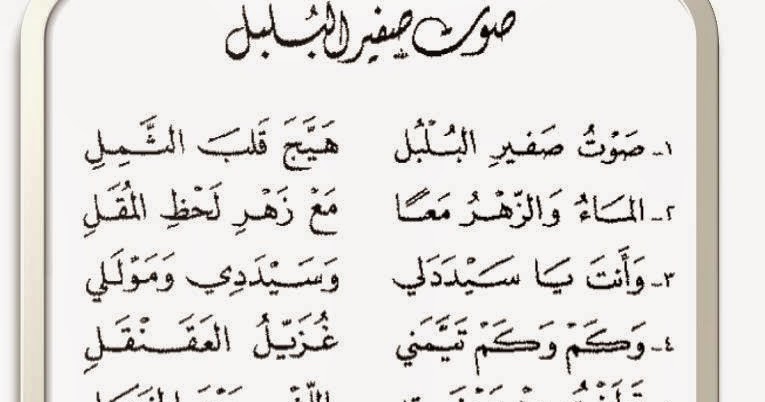 صوت صفير البلبل
١ـ صَوْتُ صَفيرِ البُلْبُلِ هَيَّجَ قَلبَ الثَّمِلِ
٢ـ المَاءُ وَالزَّهْرُ مَعًا مَعْ زَهْرِ لَحْظِ المُقَلِ
٣ـ وَأَنتَ يَا سَيِّدَدَلي وَسَيِّدَدِي وَمَوْلَلي
٤ـ وَكَمْ وَكَمْ تَيَّمَني غُزَيِّلُ العَقَنْقَلِ